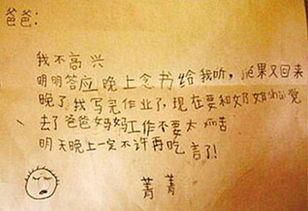 爸爸:
我不高兴
明明答应晚上念书给我听,结果又回来
晚了我写完作业了,现在要和奶奶 觉
去了爸爸妈妈工作不要太 苦
明天晚上一定不许再吃言了!
菁菁